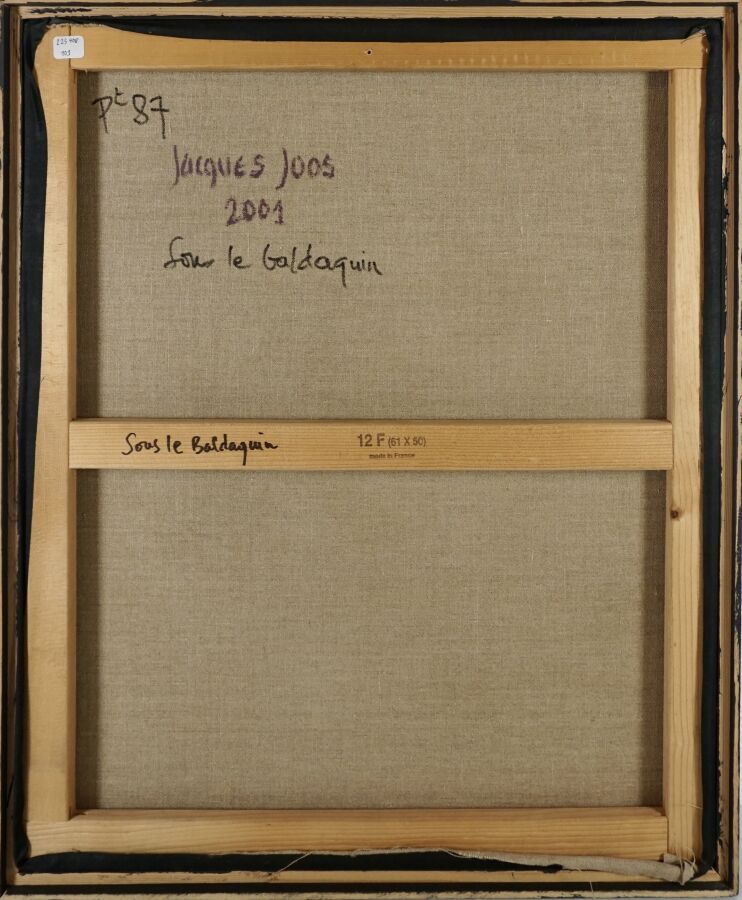 Pt 87
Jacques Joos
2001
Sous le baldaquin
Sous le Baldaquin
12 F (61 X 50)
made in France